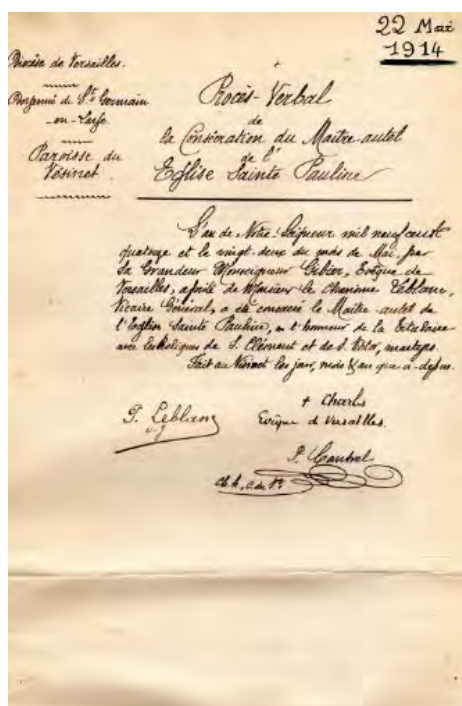 22 Mai
1914
Diocèse de Versailles.
Doyenné de St Germain
-en-Laye.
Paroisse du
Vésinet.
Procès-Verbal
de
la Consécration du Maître-autel
de l'
Eglise Sainte Pauline
L'an de Notre-Seigneur mil neuf cent
quatorze et le vingt-deux du mois de Mai, par
Sa Grandeur Monseigneur Gibier, Evêque de
Versailles, assisté de Monsieur le Chanoine Leblanc,
Vicaire Général, a été consacré le Maître-autel de
l'Eglise Sainte Pauline, en l'honneur de la titulaire
avec les Reliques de S. Clément et de S. Victor, martyrs.
Fait au Vésinet les jour, mois & an que ci-dessus.
+ Charles
Evêque de Versailles.
P. Leblanc
v.g